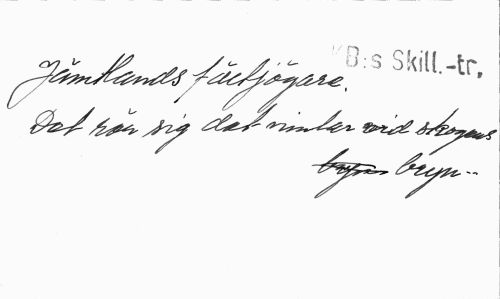 KB:s Skill.-tr.
Jämtlands fältjägare.
Det rör sig det vimlar vid skogens
bryn--